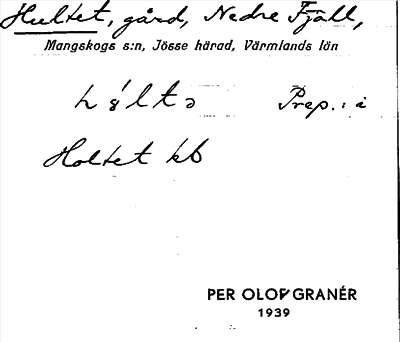 Hultet, gård, Nedre Fjäll,
Mangskogs s:n, Jösse härad, Värmlands län
Prep.: i
Holtet kb
PER OLOF GRANÉR
1939